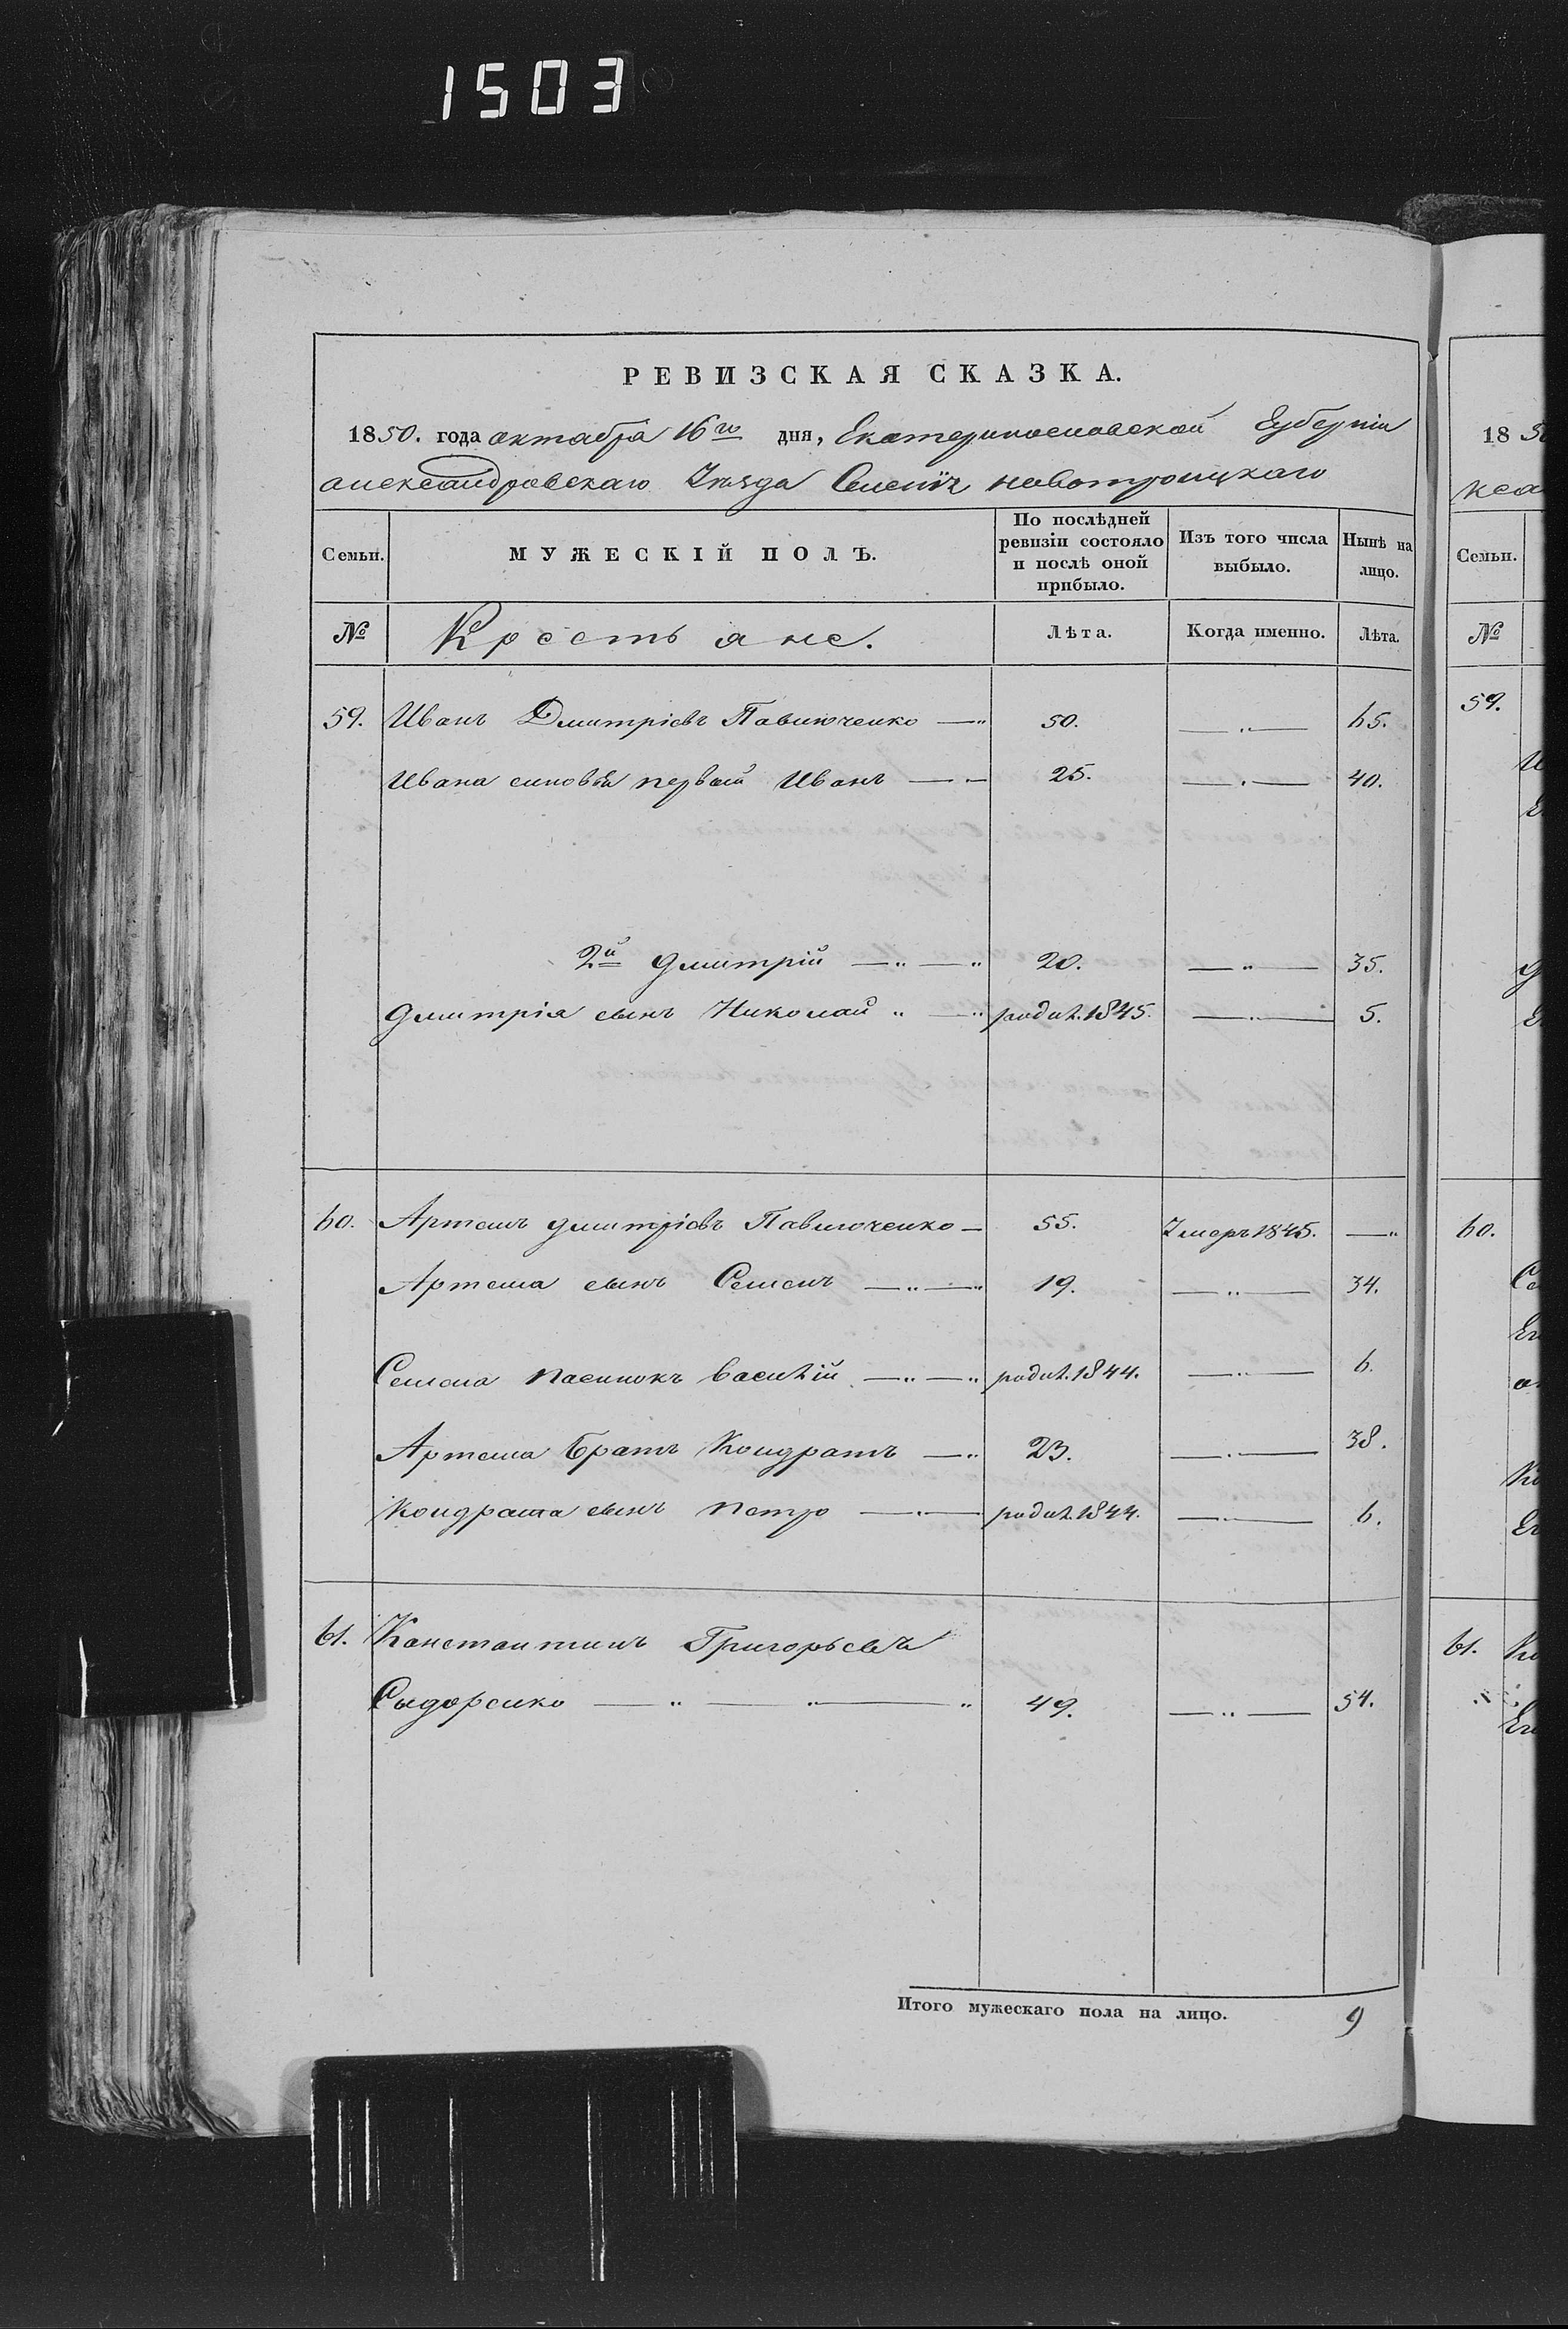 1503
РЕВИЗСКАЯ СКАЗКА.
1850. года октабра 16го дня, Екатеринославской Губерніи
александровскаго Уезда Селенія новотроицкаго
Семьи. МУЖЕСКІЙ ПОЛЪ. По послѣдней ревизіи состояло и послѣ оной прибыло. Изъ того числа выбыло. Нынѣ на лицо.
№ Крестьяне. Лѣта. Когда именно. Лѣта.
59. Иванъ Дмитріевъ Павлюченко —„ 50. —„— 65.
Ивана синовья первый Иванъ — — 25. —„— 40.
2й Дмитрій —„—„ 20. —„— 35.
Дмитрія сынъ Николай „ —„ родил. 1845. —„— 5.
60. Артемъ Дмитріевъ Павлюченко — 55. Умеръ 1845. —„
Артема сынъ Семенъ —„—„ 19. —„— 34.
Семена пасинокъ Василій —„—„ родил. 1844. —„— 6.
Артема братъ Кондратъ —„ 23. —„— 38.
Кондрата сынъ Петро —„— родил. 1844. —„— 6.
61. Канстантинъ Григорьевъ
Сидоренко —„—„—„ 49. —„— 54.
Итого мужескаго пола на лицо. 9
18
Семьи.
№
59.
60.
61.